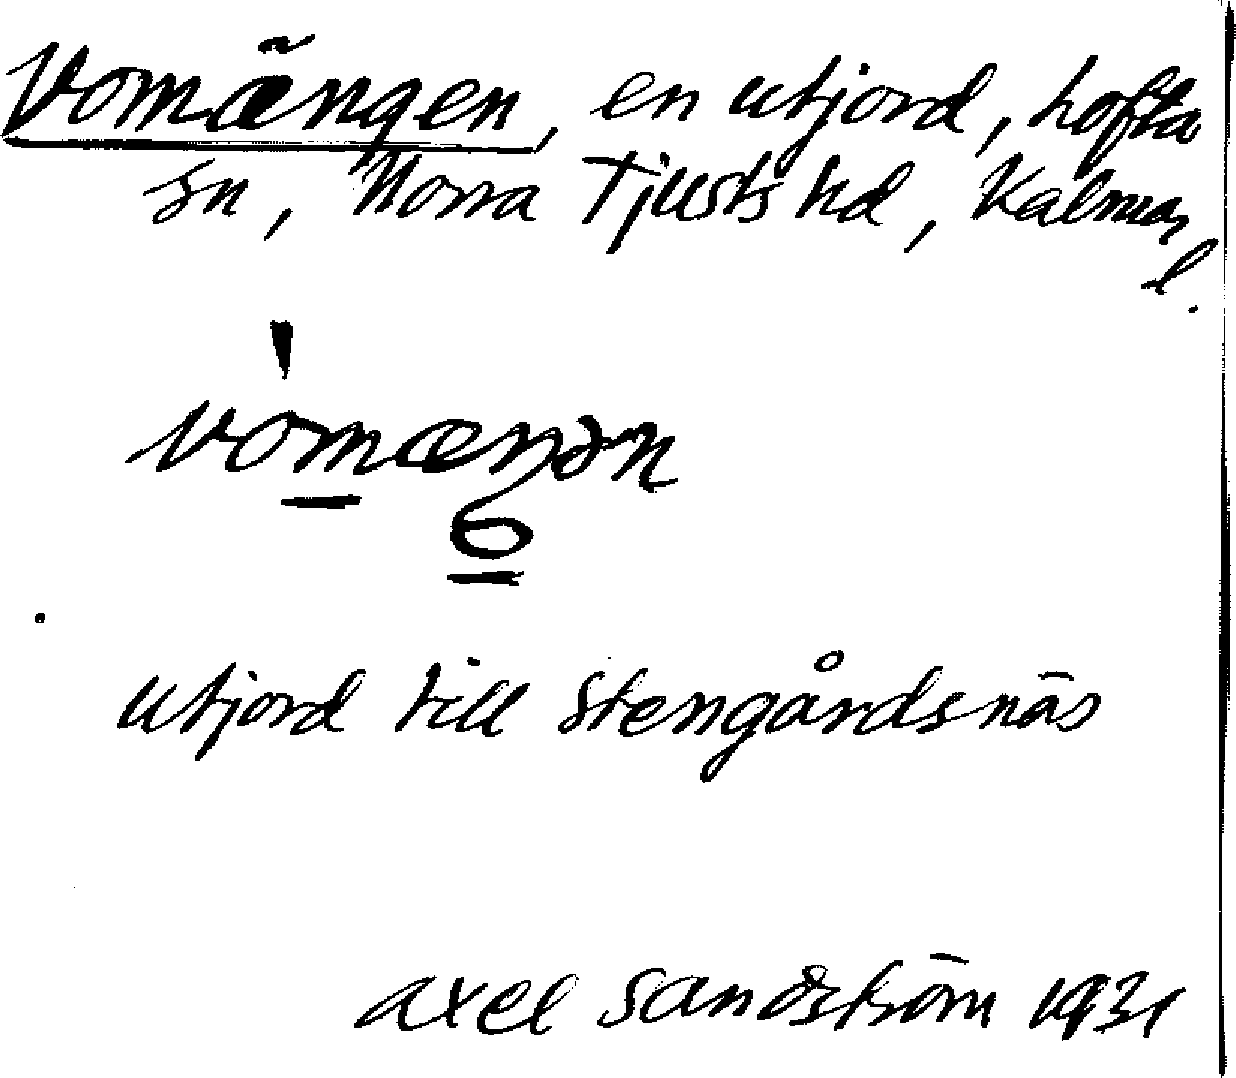 Vomängen, en utjord, Lofta
sn, Norra Tjusts hd, Kalmar
l.
vomæŋən
utjord till Stengårdsnäs
Axel Sandström 1931